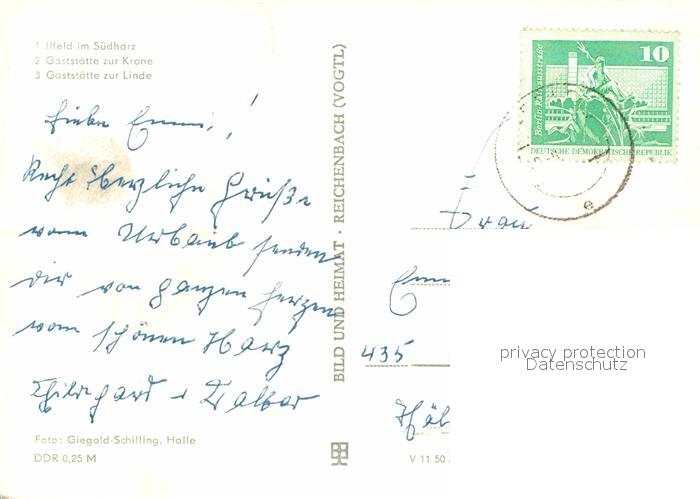 1 Ilfeld im Südharz
2 Gaststätte zur Krone
3 Gaststätte zur Linde
Liebe Emmi,!
Recht herzliche Grüße
vom Urlaub senden
dir von ganzen Herzen
vom schönen Harz
Hildegard u
Foto: Giegold-Schilling, Halle
DDR 0,25 M
BILD UND HEIMAT · REICHENBACH (VOGTL)
Berlin-Rathausstraße
10
DEUTSCHE DEMOKRATISCHE REPUBLIK
e
Frau
435
V 11 50
privacy protection
Datenschutz